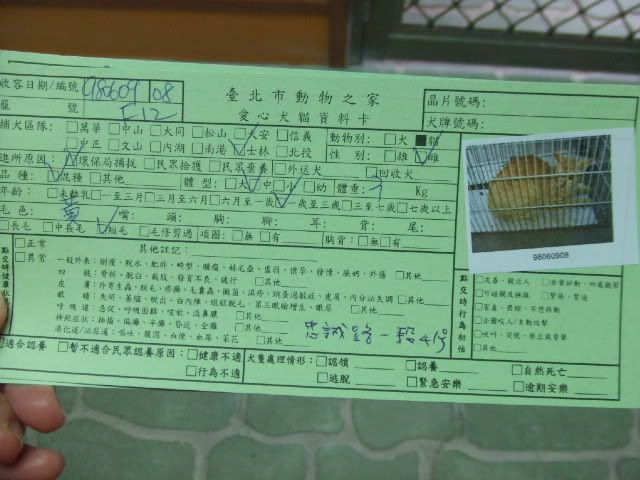 收容日期/編號 980609 108 臺北市動物之家 晶片號碼:
籠 號 F12 愛心犬貓資料卡 犬牌號碼:
捕犬區隊: □萬華 □中山 □大同 □松山 □大安 □信義 動物別: □犬 ■貓
□中正 □文山 □內湖 □南港 ☑士林 □北投 性 別: □雄 ☑雌
進所原因: ☑環保局捕捉 □民眾拾獲 □民眾棄養 □外送犬 □回收犬
品 種: ☑混種 □其他 體 型: □大 ☑中 □小 □幼 體重: Kg
年齡: □未離乳 □一至三月 □三月至六月 □六月至一歲 □一歲至三歲 □三至七歲 □七歲以上
毛 色: 黃 嘴: 頭: 胸: 腳: 耳: 背: 尾:
□長毛 □中長毛 ☑短毛 □毛修剪過 項圈: □無 □有 胸背: □無 □有
98060908
點交時健康狀
□正常
□異常
其他註記:
一般外表: 削瘦、脫水、肥胖、畸型、腫瘤、虛弱、懷孕、發情、外傷 □其他
四 肢: 骨折、脫臼、截肢、發育不良、跛行 □其他
皮 膚: 外寄生蟲、脫毛、疥癬、毛囊蟲、黴菌、濕疹、跳蚤過敏症、皮屑、內分泌失調 □其他
眼 睛: 失明、萎縮、脫出、白內障、眼球脫毛、第三眼瞼增生、眼屎 □其他
呼吸道: 急促、呼吸困難、咳嗽、流鼻膿 □其他
神經症狀: 抽搐、偏癱、半癱、昏迷、全癱 □其他
消化道/泌尿道: 嘔吐、腹瀉、血便、血尿、尿失禁 □其他
忠誠路一段4號
點交時行為初估
□友善、親近人 □非常好動、四處觀察
□可碰觸及撫摸 □緊張、緊迫
□害羞、畏縮、不想移動
□企圖咬人/主動攻擊
□吠叫、哭號、發出威脅聲
□其他
□適合認養 □暫不適合民眾認養原因: □健康不適 犬隻處理情形: □認領 □認養 □自然死亡
□行為不適 □逃脫 □緊急安樂 □逾期安樂